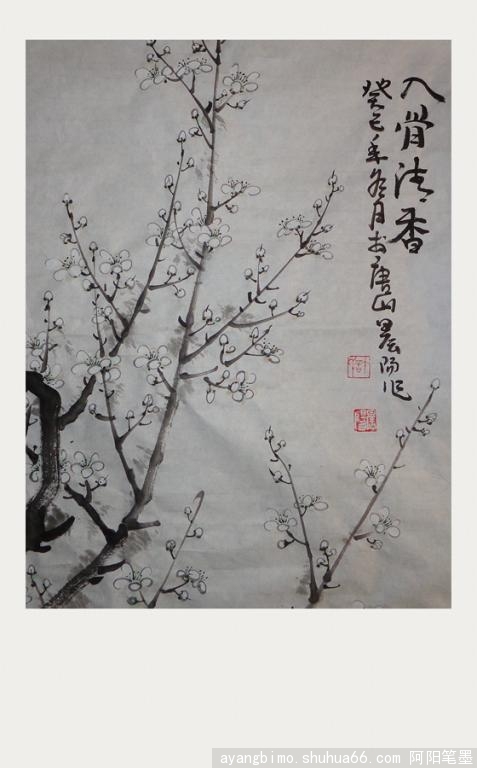 入骨清香
癸巳年冬月于唐山晨阳作
ayangbimo.shuhua66.com 阿阳笔墨